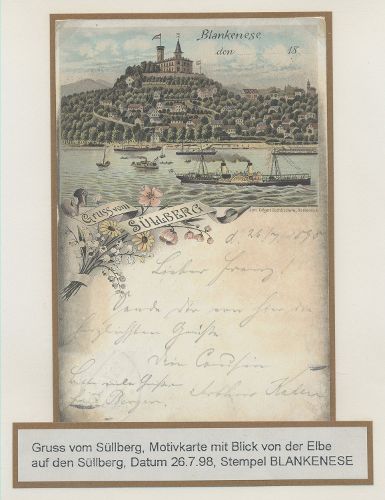 Blankenese
den 18
Gruss vom
SÜLLBERG
d. 26/7 1898
Lieber Franz!
Sende Dir von hier die
herzlichsten Grüße
Dein Cousin
Arthur
Bitte viele Grüße
Berger
Gruss vom Süllberg, Motivkarte mit Blick von der Elbe
auf den Süllberg, Datum 26.7.98, Stempel BLANKENESE